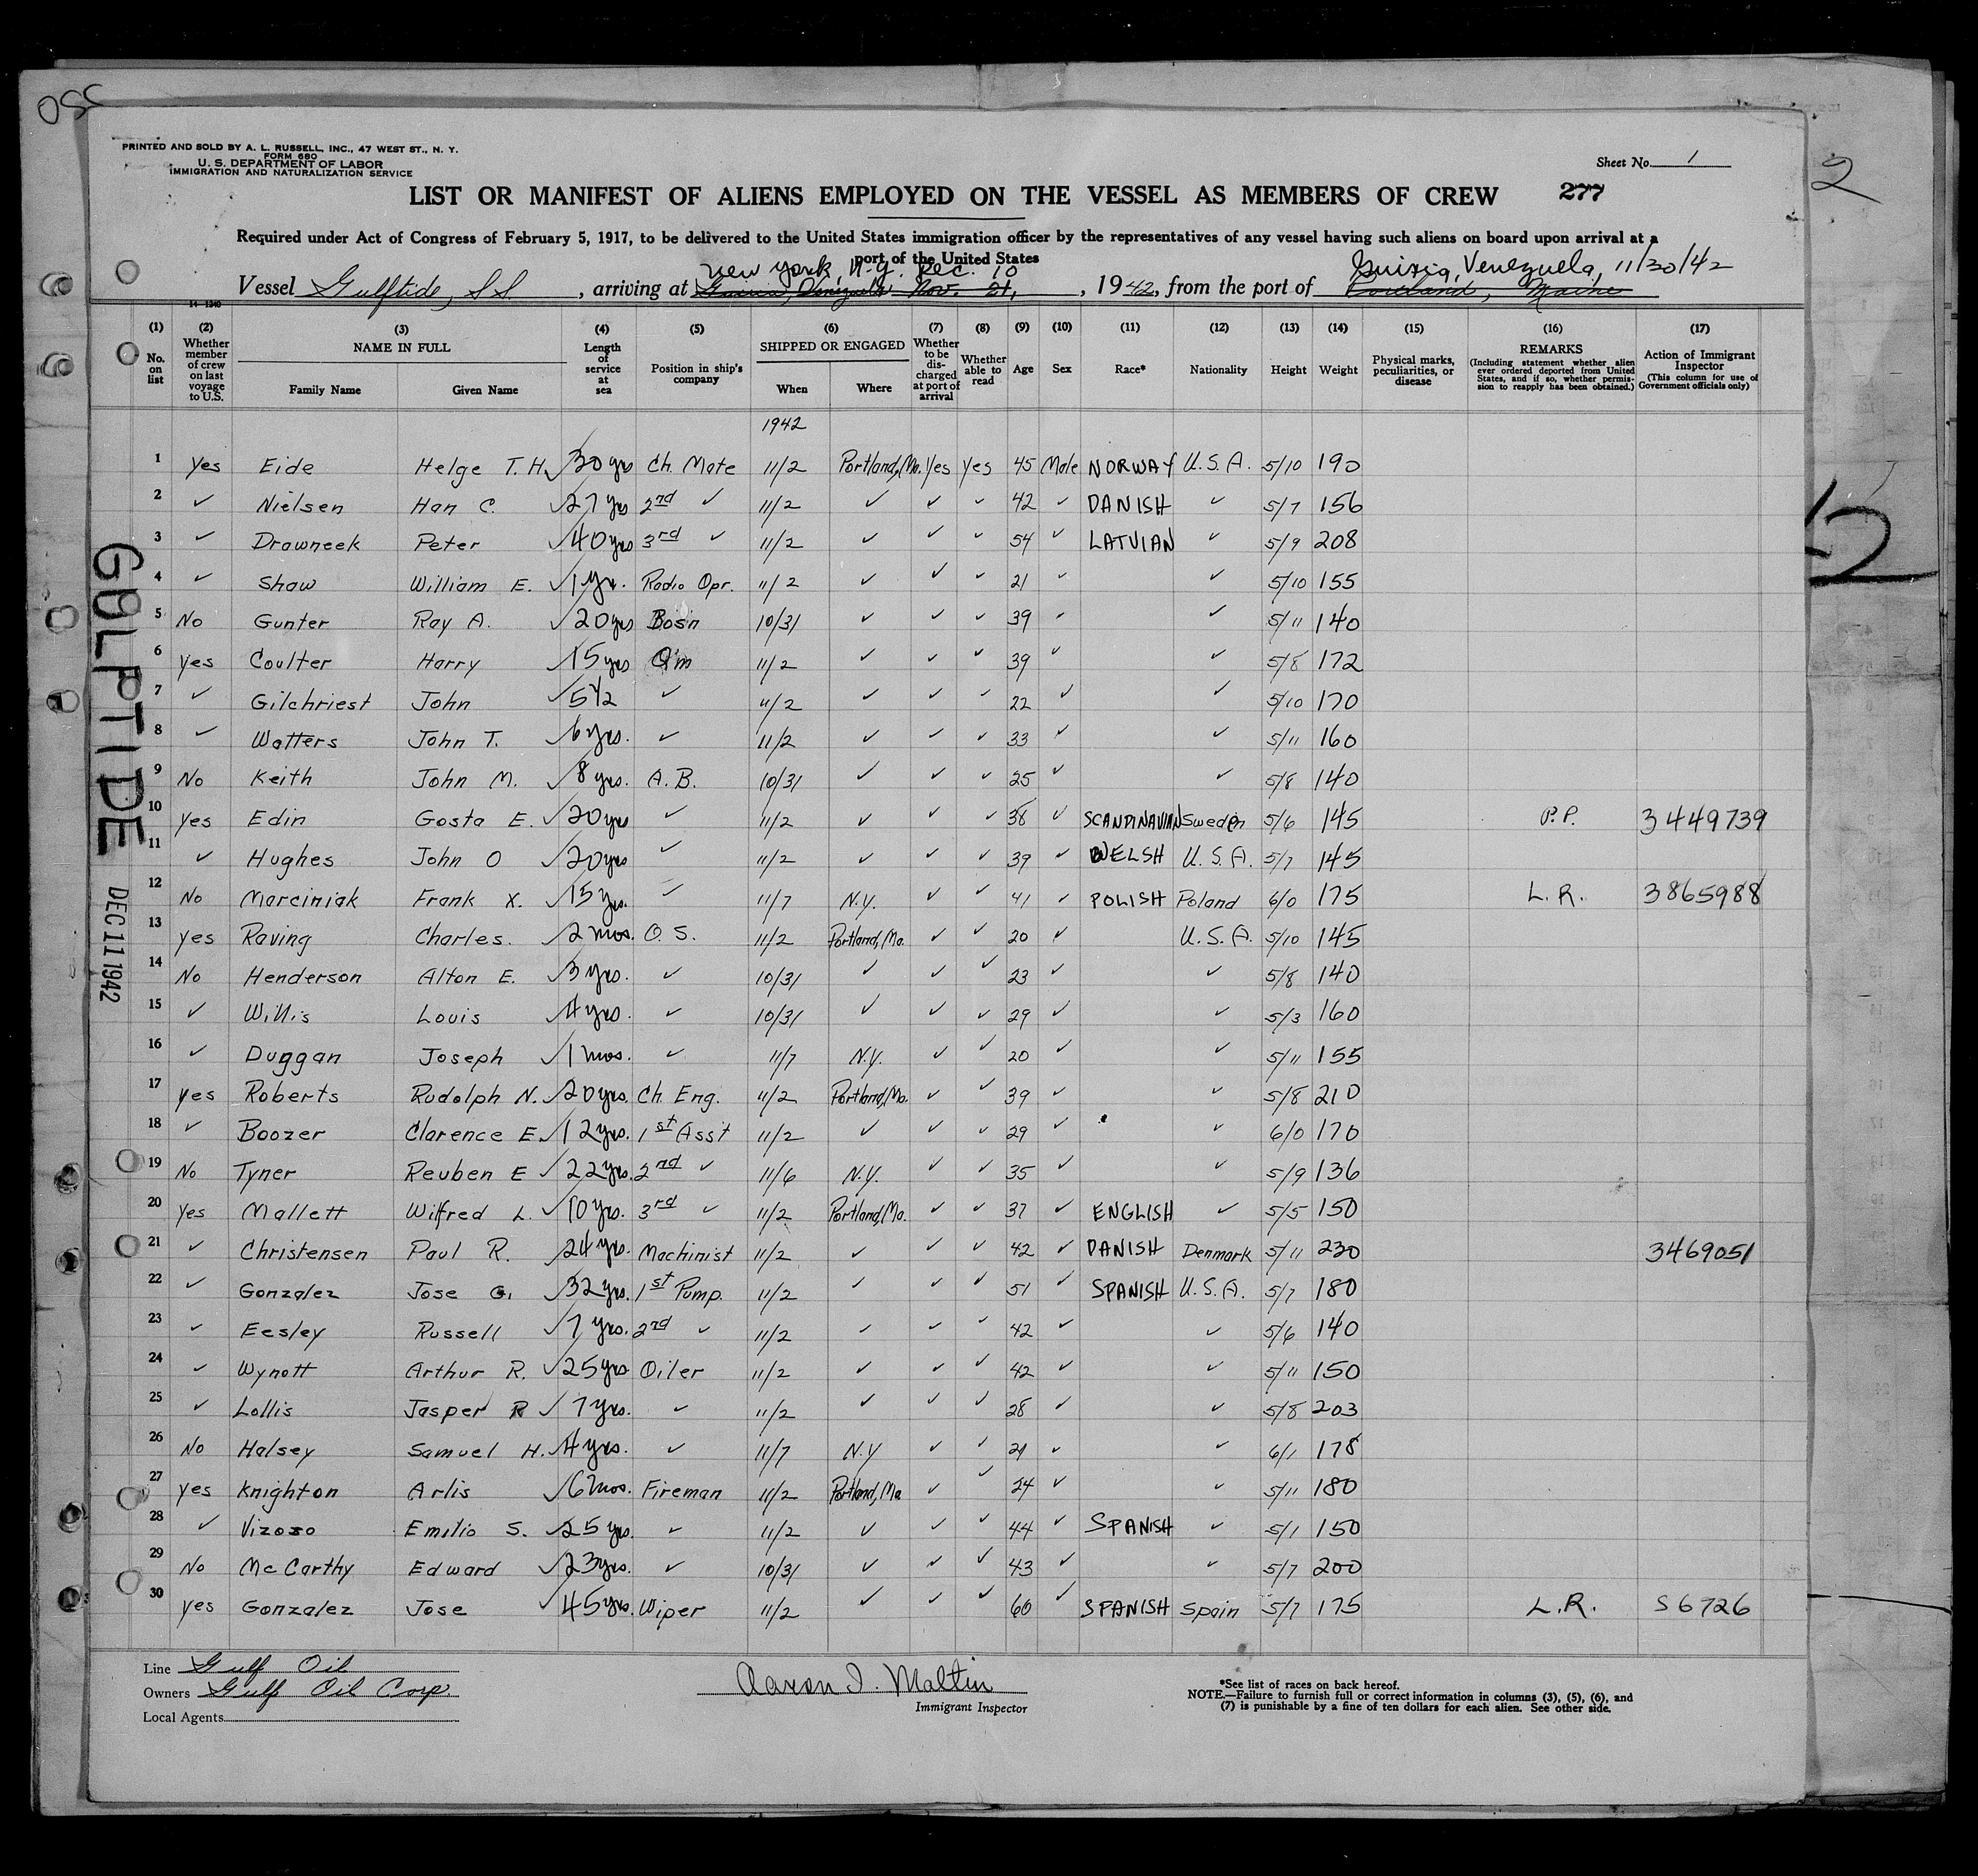 OSS
PRINTED AND SOLD BY A. L. RUSSELL, INC., 47 WEST ST., N. Y.
FORM 680
U. S. DEPARTMENT OF LABOR
IMMIGRATION AND NATURALIZATION SERVICE
Sheet No. 1
2
LIST OR MANIFEST OF ALIENS EMPLOYED ON THE VESSEL AS MEMBERS OF CREW 277
Required under Act of Congress of February 5, 1917, to be delivered to the United States immigration officer by the representatives of any vessel having such aliens on board upon arrival at a
port of the United States
New York, N.Y. Dec. 10 Guiria, Venezuela, 11/30/42
Vessel Gulftide, SS, arriving at Guiria, Venezuela Nov. 21, 1942, from the port of Portland, Maine
14-1340
(1) No. on list (2) Whether member of crew on last voyage to U.S. (3) NAME IN FULL Family Name Given Name (4) Length of service at sea (5) Position in ship's company (6) SHIPPED OR ENGAGED When Where (7) Whether to be discharged at port of arrival (8) Whether able to read (9) Age (10) Sex (11) Race* (12) Nationality (13) Height (14) Weight (15) Physical marks, peculiarities, or disease (16) REMARKS (Including statement whether alien ever ordered deported from United States, and if so, whether permission to reapply has been obtained.) (17) Action of Immigrant Inspector (This column for use of Government officials only)
1942
1 Yes Eide Helge T. H. ✓ 30 yrs Ch. Mate 11/2 Portland, Ma. Yes Yes 45 Male NORWAY U.S.A. 5/10 190
2 ✓ Nielsen Han C. ✓ 27 yrs 2nd ✓ 11/2 ✓ ✓ ✓ 42 ✓ DANISH ✓ 5/7 156
3 ✓ Drawneek Peter ✓ 40 yrs 3rd ✓ 11/2 ✓ ✓ ✓ 54 ✓ LATVIAN ✓ 5/9 208
4 ✓ Shaw William E. ✓ 1 yr. Radio Opr. 11/2 ✓ ✓ ✓ 21 ✓ ✓ 5/10 155
5 No Gunter Ray A. ✓ 20 yrs Bosn 10/31 ✓ ✓ ✓ 39 ✓ ✓ 5/11 140
6 Yes Coulter Harry ✓ 15 yrs Q'm 11/2 ✓ ✓ ✓ 39 ✓ ✓ 5/8 172
7 ✓ Gilchriest John ✓ 5 1/2 ✓ 11/2 ✓ ✓ ✓ 22 ✓ ✓ 5/10 170
8 ✓ Watters John T. ✓ 6 yrs. ✓ 11/2 ✓ ✓ ✓ 33 ✓ ✓ 5/11 160
9 No Keith John M. ✓ 8 yrs. A.B. 10/31 ✓ ✓ ✓ 25 ✓ ✓ 5/8 140
10 Yes Edin Gosta E. ✓ 20 yrs ✓ 11/2 ✓ ✓ ✓ 38 ✓ SCANDINAVIAN Sweden 5/6 145 P.P. 3449739
11 ✓ Hughes John O ✓ 20 yrs ✓ 11/2 ✓ ✓ ✓ 39 ✓ WELSH U.S.A. 5/7 145
12 No Marciniak Frank X. ✓ 15 yrs. ✓ 11/7 N.Y. ✓ ✓ 41 ✓ POLISH Poland 6/0 175 L.R. 3865988
13 Yes Raving Charles. ✓ 2 mos. O.S. 11/2 Portland, Ma. ✓ ✓ 20 ✓ U.S.A. 5/10 145
14 No Henderson Alton E. ✓ 3 yrs. ✓ 10/31 ✓ ✓ ✓ 23 ✓ ✓ 5/8 140
15 ✓ Willis Louis ✓ 4 yrs. ✓ 10/31 ✓ ✓ ✓ 29 ✓ ✓ 5/3 160
16 ✓ Duggan Joseph ✓ 1 mos. ✓ 11/7 N.Y. ✓ ✓ 20 ✓ ✓ 5/11 155
17 Yes Roberts Rudolph N. ✓ 20 yrs. Ch. Eng. 11/2 Portland, Ma. ✓ ✓ 39 ✓ ✓ 5/8 210
18 ✓ Boozer Clarence E. ✓ 12 yrs. 1st Asst 11/2 ✓ ✓ ✓ 29 ✓ ✓ 6/0 170
19 No Tyner Reuben E ✓ 22 yrs. 2nd ✓ 11/6 N.Y. ✓ ✓ 35 ✓ ✓ 5/9 136
20 Yes Mallett Wilfred L. ✓ 10 yrs. 3rd ✓ 11/2 Portland, Ma. ✓ ✓ 37 ✓ ENGLISH ✓ 5/5 150
21 ✓ Christensen Paul R. ✓ 24 yrs. Machinist 11/2 ✓ ✓ ✓ 42 ✓ DANISH Denmark 5/11 230 3469051
22 ✓ Gonzalez Jose G. ✓ 32 yrs. 1st Pump. 11/2 ✓ ✓ ✓ 51 ✓ SPANISH U.S.A. 5/7 180
23 ✓ Eesley Russell ✓ 7 yrs. 2nd ✓ 11/2 ✓ ✓ ✓ 42 ✓ ✓ 5/6 140
24 ✓ Wynott Arthur R. ✓ 25 yrs Oiler 11/2 ✓ ✓ ✓ 42 ✓ ✓ 5/11 150
25 ✓ Lollis Jasper R ✓ 7 yrs. ✓ 11/2 ✓ ✓ ✓ 28 ✓ ✓ 5/8 203
26 No Halsey Samuel H. ✓ 4 yrs. ✓ 11/7 N.Y ✓ ✓ 21 ✓ ✓ 6/1 178
27 Yes Knighton Arlis ✓ 6 mos. Fireman 11/2 Portland, Ma ✓ ✓ 24 ✓ ✓ 5/11 180
28 ✓ Vizoso Emilio S. ✓ 25 yrs. ✓ 11/2 ✓ ✓ ✓ 44 ✓ SPANISH ✓ 5/1 150
29 No McCarthy Edward ✓ 23 yrs. ✓ 10/31 ✓ ✓ ✓ 43 ✓ ✓ 5/7 200
30 Yes Gonzalez Jose ✓ 45 yrs. Wiper 11/2 ✓ ✓ ✓ 60 ✓ SPANISH Spain 5/7 175 L.R. S6726
GULPTIDE
DEC 11 1942
Line Gulf Oil
Owners Gulf Oil Corp
Local Agents
Aaron I. Maltin
Immigrant Inspector
*See list of races on back hereof.
NOTE.—Failure to furnish full or correct information in columns (3), (5), (6), and
(7) is punishable by a fine of ten dollars for each alien. See other side.